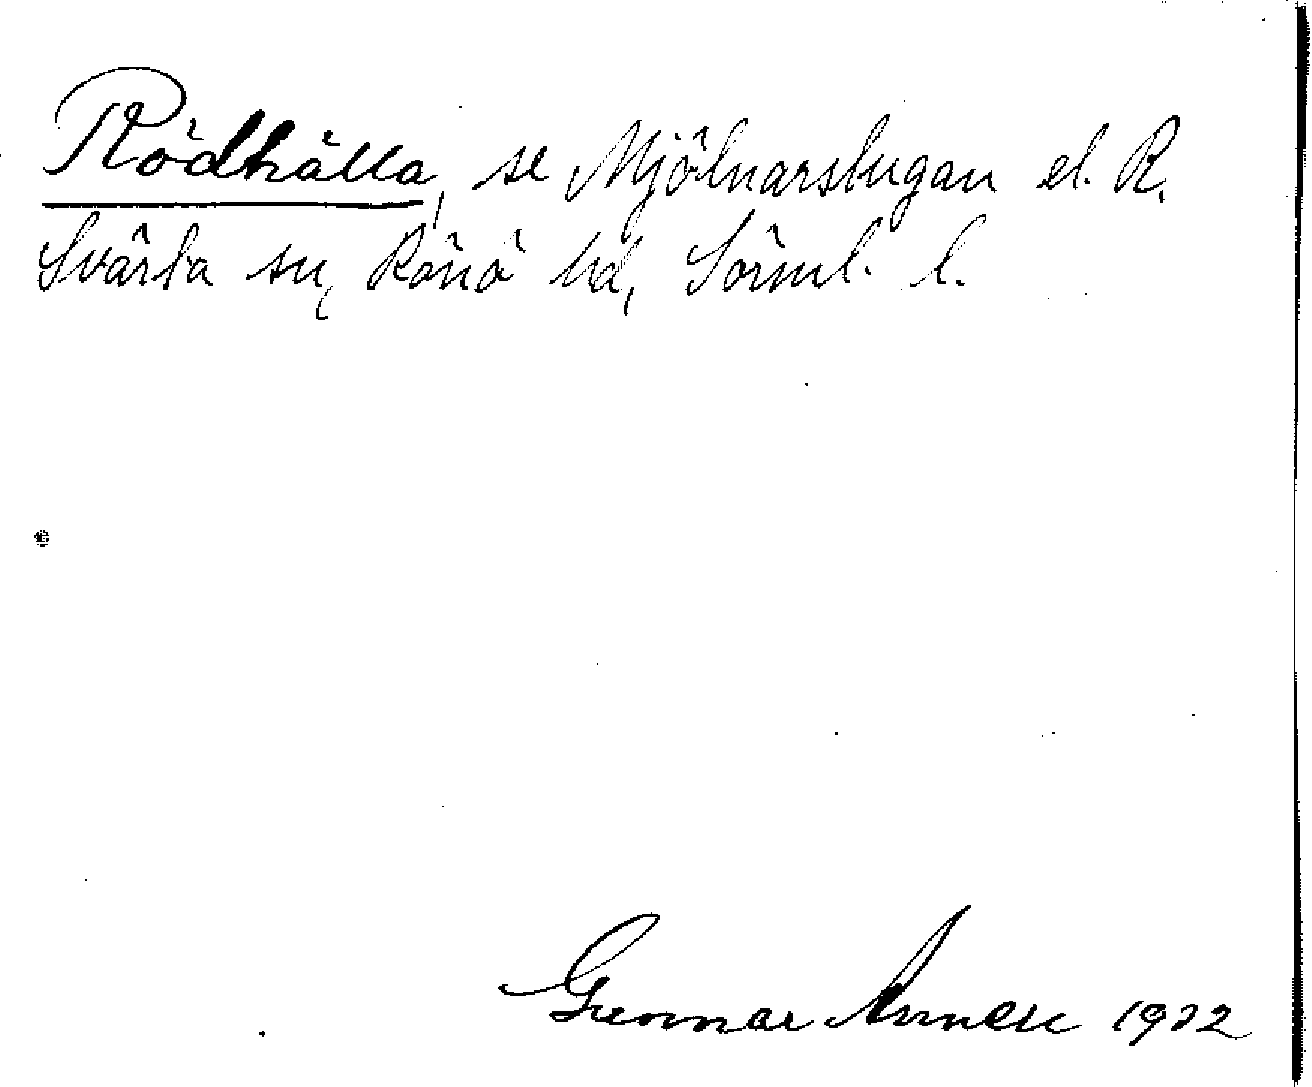 Rödhälla, se Mjölnarstugan el. R.
Svärta sn, Rönö hd, Sörml. l.
Gunnar 1932